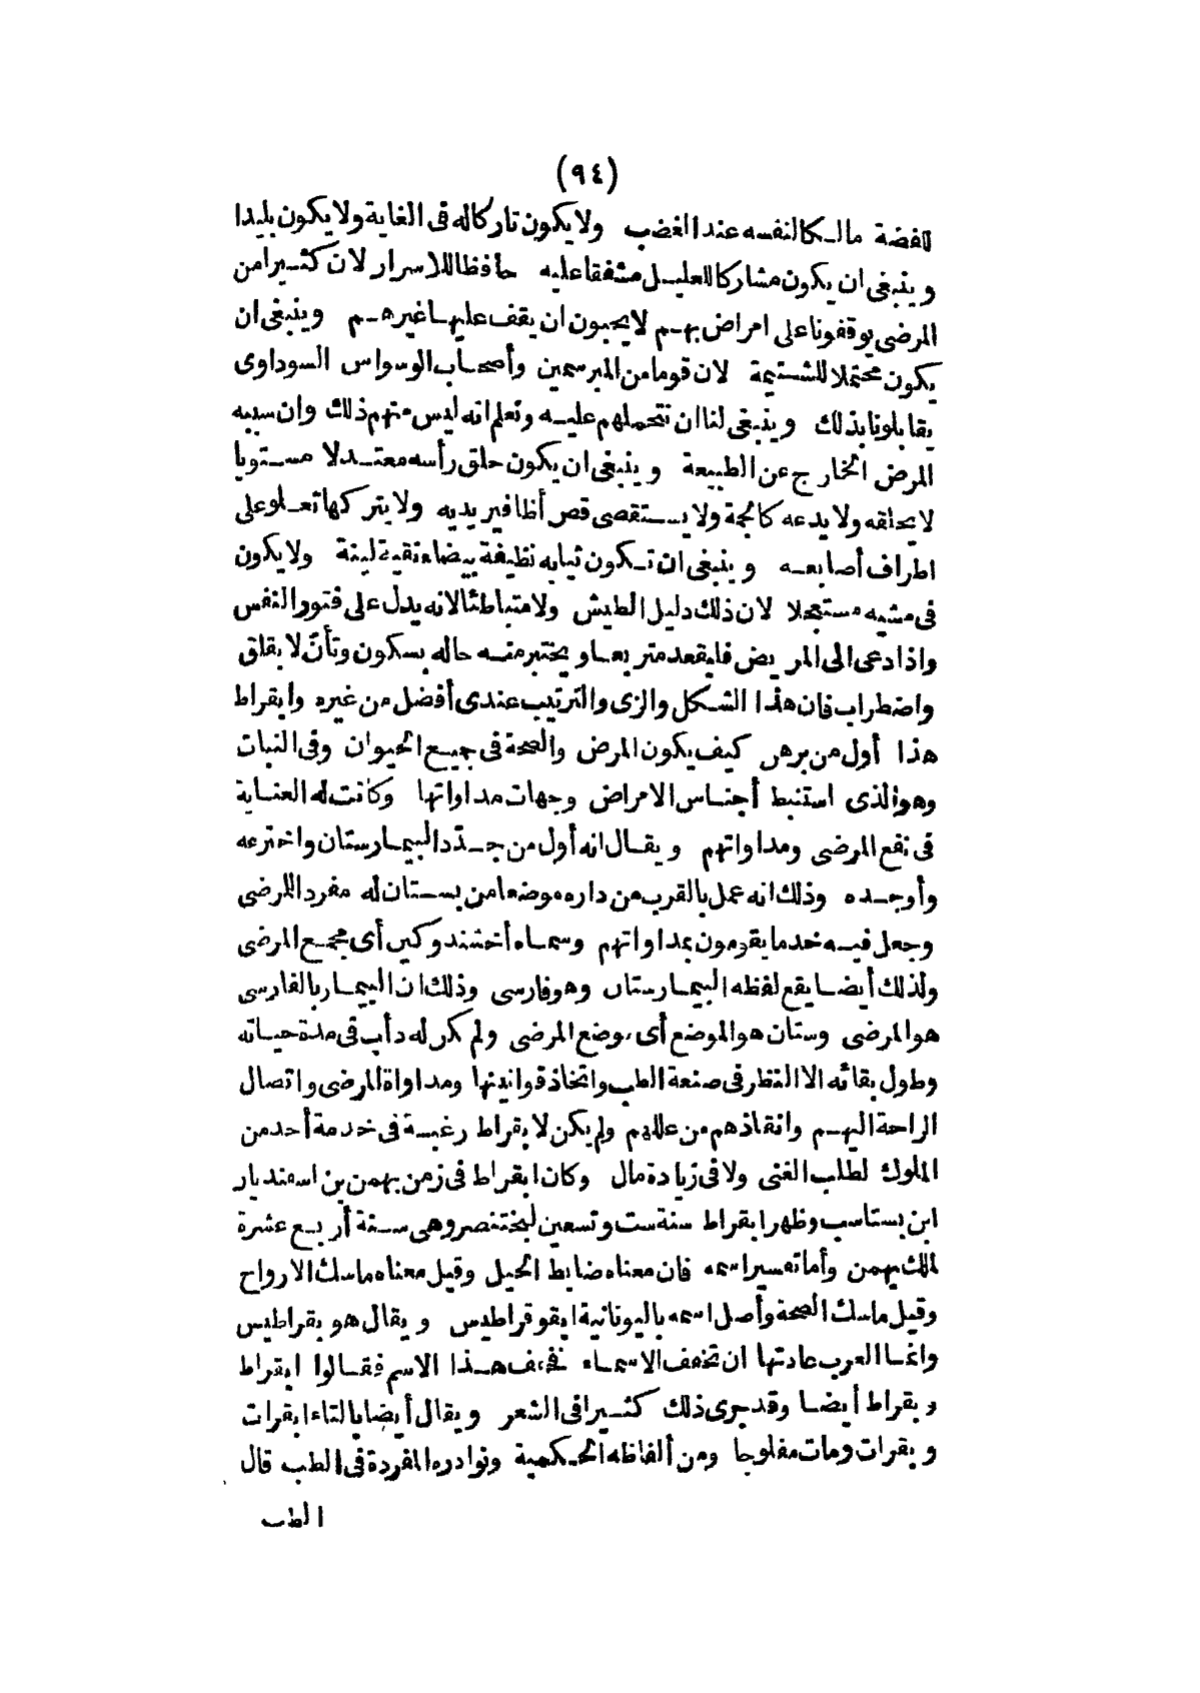 (٩٤)
للفضة مالكالنفسه عند الغضب ولا يكون تاركاله فى الغاية ولا يكون بليدا
وينبغى ان يكون مشاركا للعليل مشفقا عليه حافظا للاسرار لان كثيرا من
المرضى يوقفونا على امراض بهم لا يحبون ان يقف عليها غيرهم وينبغى ان
يكون محتملا للشتيمة لان قوما من المبرسمين وأصحاب الوسواس السوداوى
يقابلونا بذلك وينبغى لنا ان نتحملهم عليه ونعلم انه ليس منهم ذلك وان سببه
المرض الخارج عن الطبيعة وينبغى ان يكون حلق رأسه معتدلا مستويا
لا يحلقه ولا يدعه كالجمة ولا يستقصى قص أظافير يديه ولا يتركها تعلو على
اطراف أصابعه وينبغى ان تكون ثيابه نظيفة بيضاء نقية لينة ولا يكون
فى مشيه مستعجلا لان ذلك دليل الطيش ولا متباطئا لانه يدل على فتور النفس
واذا دعى الى المريض فليقعد متربعا ويختبر منه حاله بسكون وتأن لا بقلق
واضطراب فان هذا الشكل والزى والترتيب عندى أفضل من غيره وابقراط
هذا أول من برهن كيف يكون المرض والصحة فى جميع الحيوان وفى النبات
وهو الذى استنبط أجناس الامراض وجهات مداواتها وكانت له العناية
فى نفع المرضى ومداواتهم ويقال انه أول من جدّد البيمارستان واخترعه
وأوجده وذلك انه عمل بالقرب من داره موضعا من بستان له مفردا للمرضى
وجعل فيه خدما يقومون بمداواتهم وسماه أخشندوكين أى مجمع المرضى
ولذلك أيضا يقع لفظه البيمارستان وهو فارسى وذلك ان البيمار بالفارسى
هو المرضى وستان هو الموضع أى موضع المرضى ولم يكن له دأب فى مدة حياته
وطول بقائه الا النظر فى صنعة الطب واتخاذ قوانينها ومداواة المرضى واتصال
الراحة اليهم وانقاذهم من عللهم ولم يكن لابقراط رغبة فى خدمة أحد من
الملوك لطلب الغنى ولا فى زيادة مال وكان ابقراط فى زمن بهمن بن اسفنديار
ابن بستاسب وظهر ابقراط سنة ست وتسعين لبختنصر وهى سنة أربع عشرة
لملك بهمن وأما تفسير اسمه فان معناه ضابط الخيل وقيل معناه ماسك الارواح
وقيل ماسك الصحة وأصل اسمه باليونانية ايقوقراطيس ويقال هو بقراطيس
وانما العرب عادتها ان تخفف الاسماء فخفف هذا الاسم فقالوا ابقراط
وبقراط أيضا وقد جرى ذلك كثيرا فى الشعر ويقال أيضا بالتاء ابقرات
وبقرات ومات مفلوجا ومن ألفاظه الحكمية ونوادره المفردة فى الطب قال
الطب